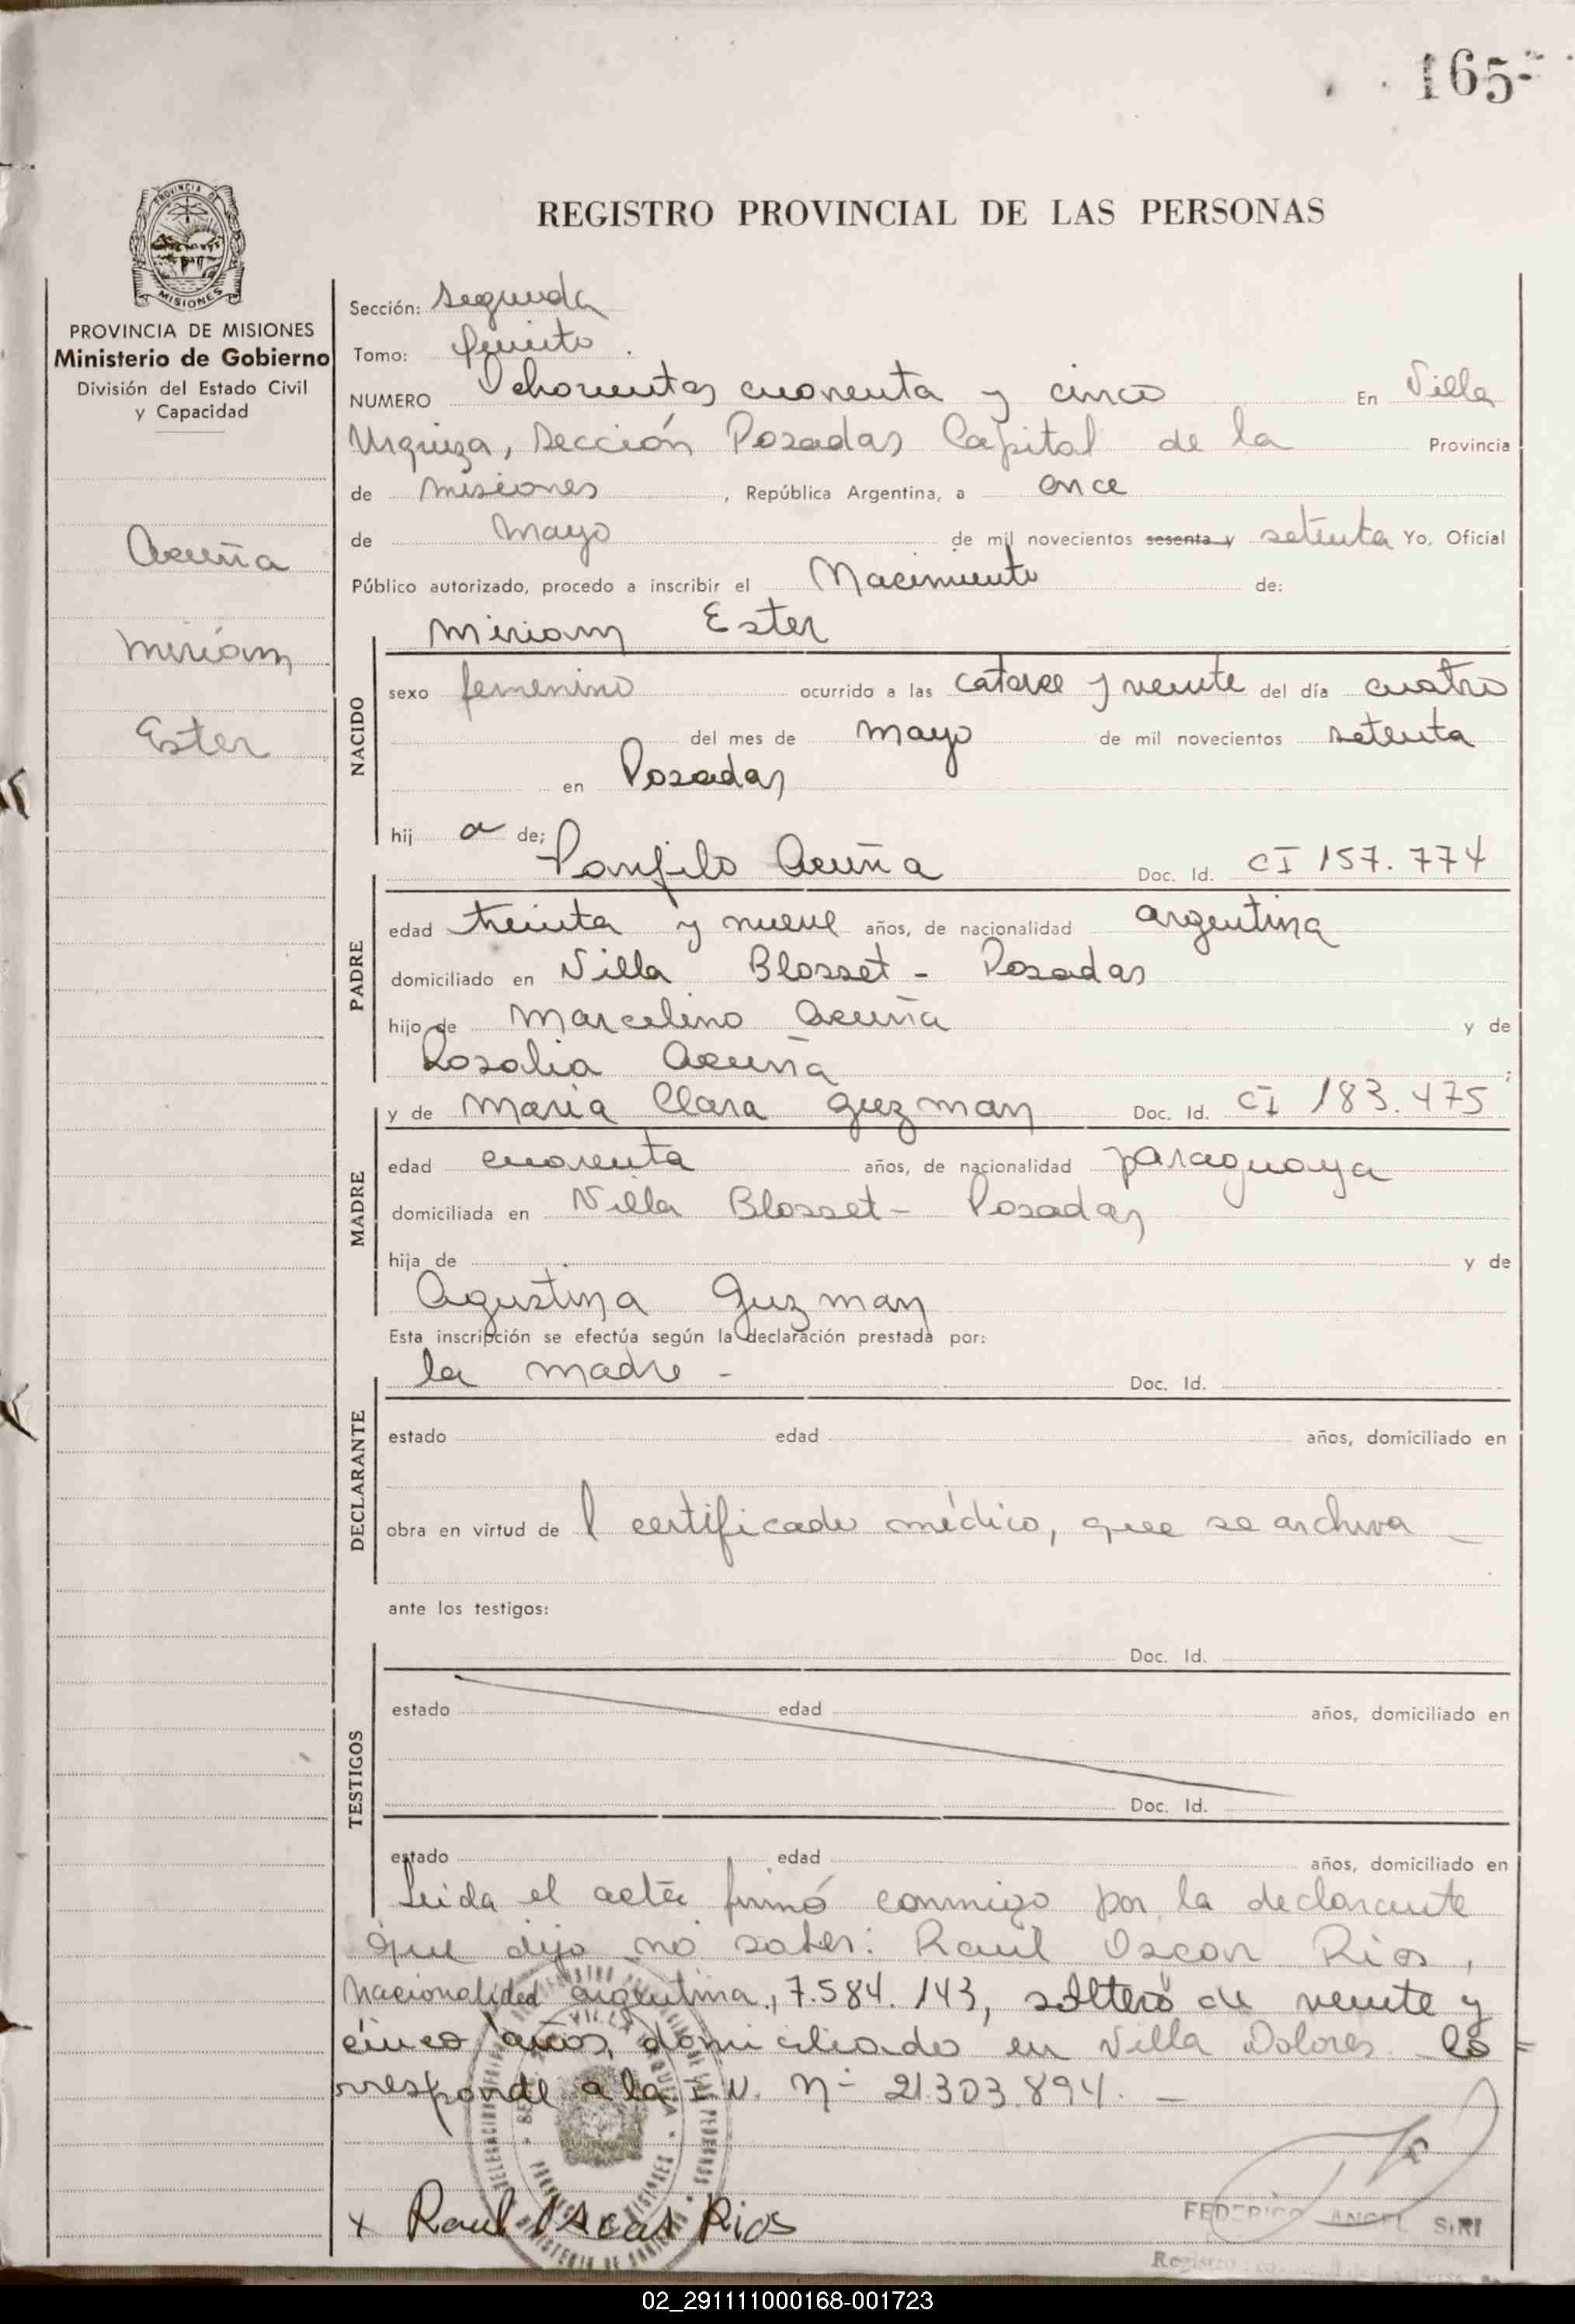 165-
PROVINCIA DE
MISIONES
PROVINCIA DE MISIONES
Ministerio de Gobierno
División del Estado Civil
y Capacidad
Acuña
Miriam
Ester
REGISTRO PROVINCIAL DE LAS PERSONAS
Sección: Segunda
Tomo: Quinto
NUMERO Ochocientos cuarenta y cinco En Villa
Urquiza, Sección Posadas Capital de la Provincia
de Misiones, República Argentina, a once
de Mayo de mil novecientos sesenta y setenta Yo, Oficial
Público autorizado, procedo a inscribir el Nacimiento de:
NACIDO
Miriam Ester
sexo femenino ocurrido a las catorce y veinte del día cuatro
del mes de Mayo de mil novecientos setenta
en Posadas
hij a de;
PADRE
Panfilo Acuña Doc. Id. CI 157.774
edad treinta y nueve años, de nacionalidad argentina
domiciliado en Villa Blosset - Posadas
hijo de Marcelino Acuña y de
Rosalia Acuña;
MADRE
y de Maria Clara Guzman Doc. Id. CI 183.475
edad cuarenta años, de nacionalidad paraguaya
domiciliada en Villa Blosset - Posadas
hija de y de
Agustina Guzman
Esta inscripción se efectúa según la declaración prestada por:
DECLARANTE
la madre - Doc. Id.
estado edad años, domiciliado en
obra en virtud de l certificado médico, que se archiva -
ante los testigos:
TESTIGOS
Doc. Id.
estado edad años, domiciliado en
Doc. Id.
estado edad años, domiciliado en
Leida el acta firmó conmigo por la declarante
que dijo no saber: Raul Oscar Rios,
nacionalidad argentina, 7.584.143, soltero de veinte y
cinco años, domiciliado en Villa Dolores. Co=
rresponde a la I.N. Nº 21.303.894. -
x Raul Oscar Rios
FEDERICO ANGEL SIRI
02_291111000168-001723